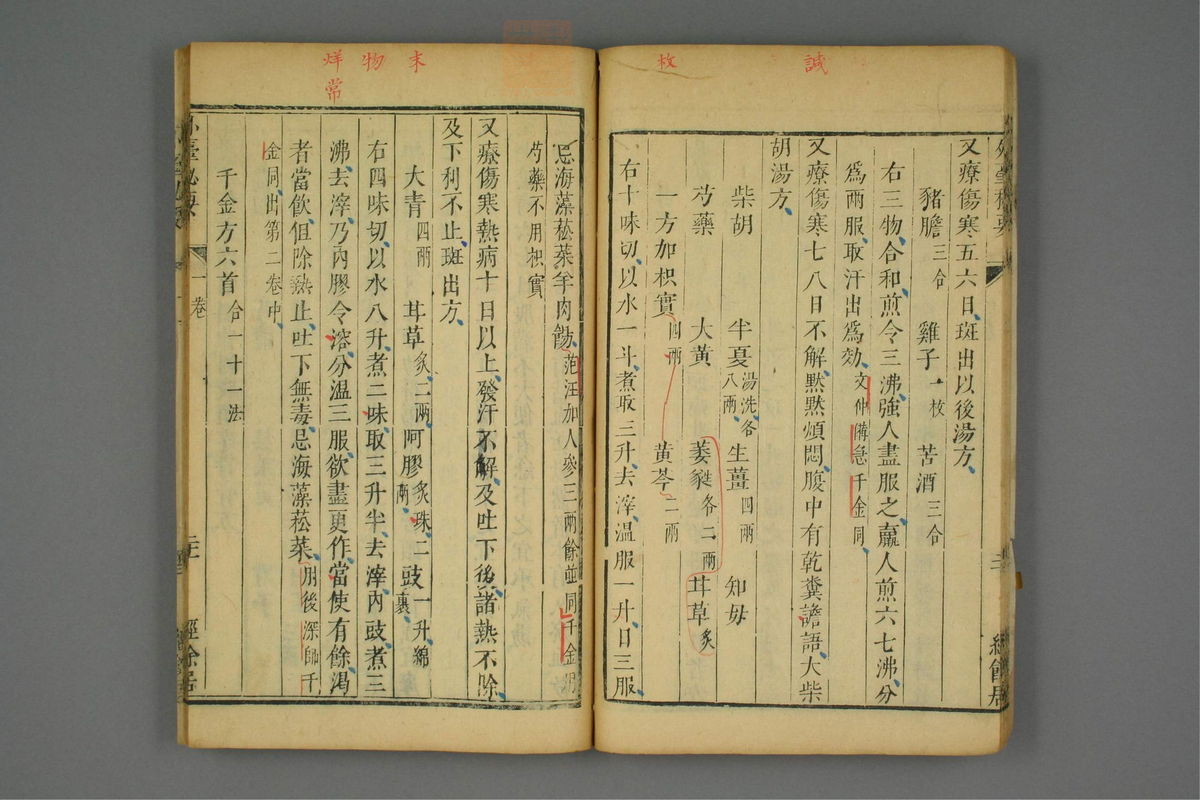 誠
枚
又療傷寒五六日斑出以後湯方
豬膽三合 雞子一枚 苦酒三合
右三物合和煎令三沸強人盡服之羸人煎六七沸分
為兩服取汗出為効文仲備急千金同
又療傷寒七八日不解默默煩悶腹中有乾糞譫語大柴
胡湯方
柴胡 半夏湯洗各八兩 生薑四兩 知母
芍藥 大黃 萎蕤各二兩 甘草炙
一方加枳實四兩 黃芩二兩
右十味切以水一斗煮取三升去滓溫服一升日三服
末
物
烊
常
忌海藻菘菜羊肉餳范汪加人參三兩餘並同千金胡
芍藥不用枳實
又療傷寒熱病十日以上發汗不解及吐下後諸熱不除
及下利不止斑出方
大青四兩 甘草炙二兩 阿膠炙珠二兩 豉一升綿裹
右四味切以水八升煮二味取三升半去滓內豉煮三
沸去滓乃內膠令溶分溫三服欲盡更作當使有餘渴
者當飲但除熱止吐下無毒忌海藻菘菜肘後深師千
金同出第二卷中
千金方六首合一十一法
臺秘要
一卷
經餘居